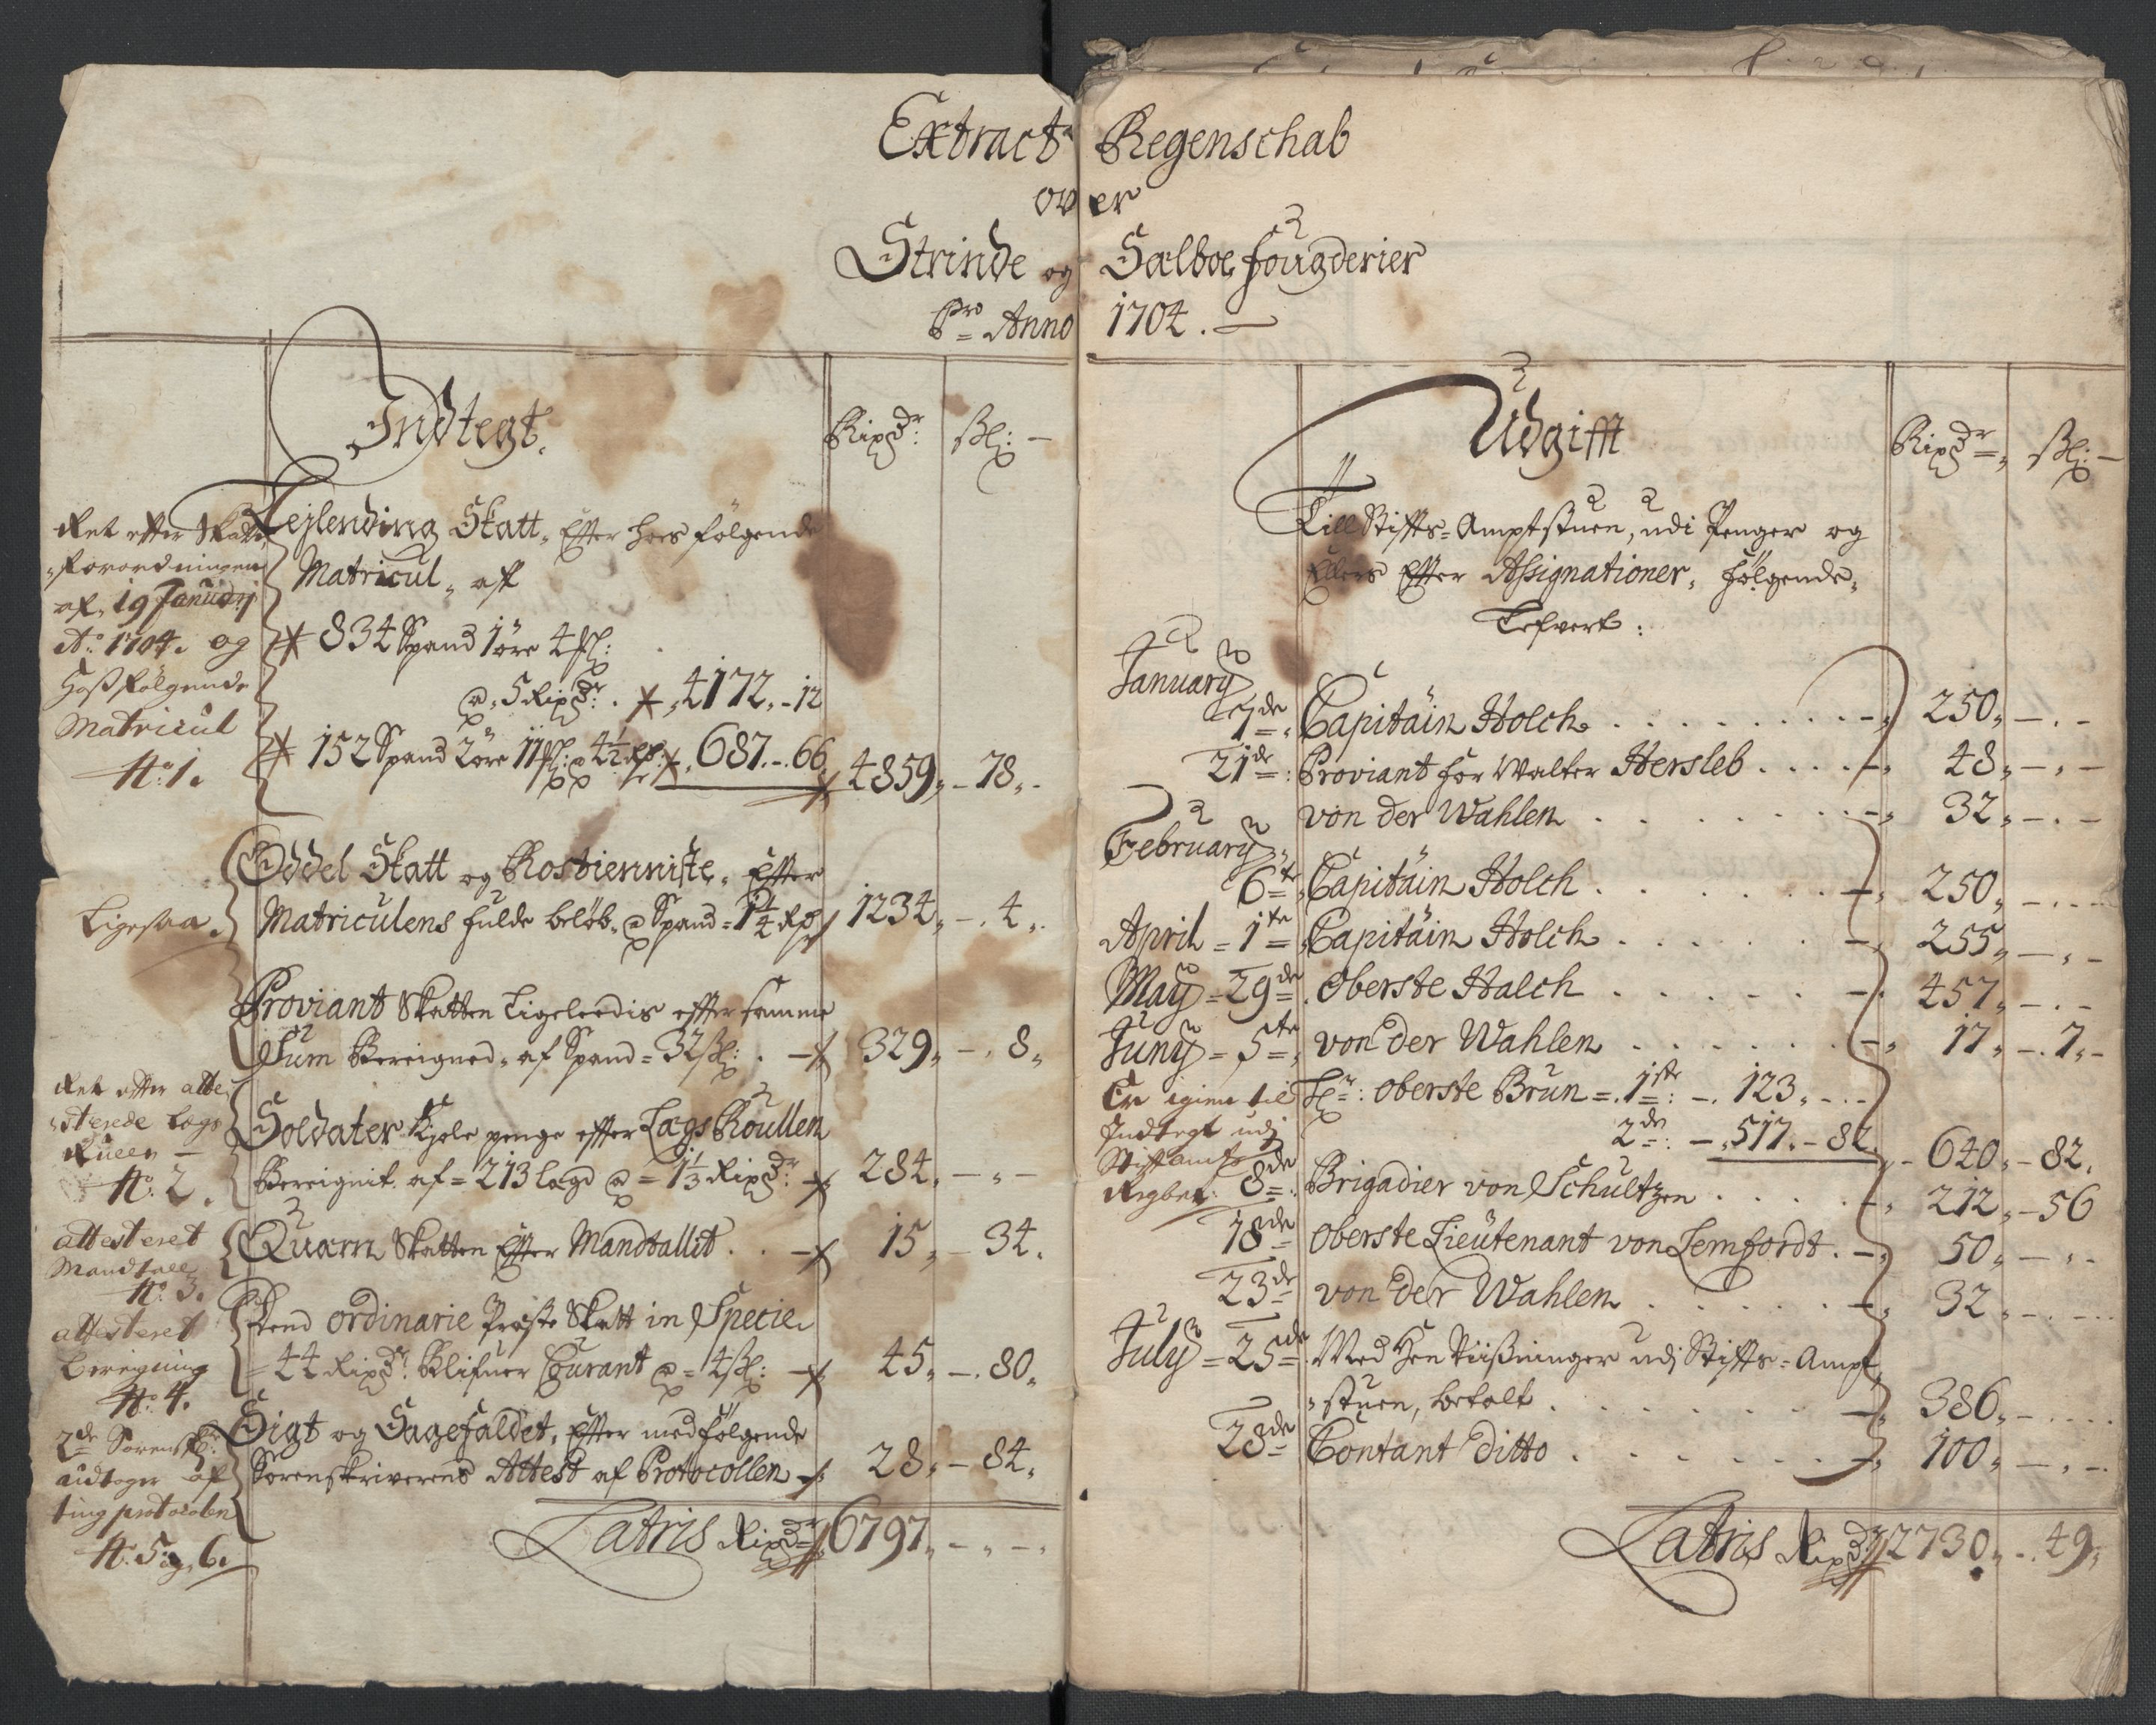 Extract Regenschab
over
Strinde og Sælboe fougderier
Pro Anno 1704.
Indtegt.
Rixdr: ſkl:
Ret efter Skatte
forordningen
af 19 January
Ao: 1704. og
Hosfølgende
Matricul
No: 1.
Lejlending Skatt, Efter hoes følgende
Matricul, aff
834 Spand 1 öre 4 ſkl:
a 5 Rixdr. 4172. - 12
152 Spand 2 öre 11 ſkl: a 4½ Rd: 687. - 66 4859. - 78.
Ligesaa.
Oddel Skatt og Rostienniste, Efter
Matriculens fulde beløb, a Spand = 1¼ Rd 1234. - 4.
Proviant Skatten Ligeleedis effter samme
Sum Bereigned, af Spand = 32 ſkl: 329. - 8.
Ret efter atte
sterede Lags
Rullen
No: 2.
Soldater Kjole penge effter Lags Roullen
Bereignit af = 213 lagd a = 1⅓ Rixdr: 284. - -
attesteret
Mandtall
No: 3.
Quarn Skatten Efter Mandtallit . . 15. - 34.
attesteret
beregning
No: 4.
Dend ordinarie Præste Skatt in Specie
= 44 Rixdr: Blifuer Courant a = 4 ſkl: 45. - 80.
2de Sorenskr:
udtoger af
ting protocolen
No: 5 og 6.
Sigt og Sagefaldet, Efter medfølgende
Sorenskriverens Attest af Protocollen 28. - 84.
Latris Rixdr 6797. - -
Udgifft
Rixdr ſkl:
Till Stiffts-Amptstuen, udi Penger og
Ellers Efter Assignationer, følgende,
Lefvert:
January
7de Capitäin Holch . . . 250. - -
21de: Proviant for Walter Hersleb . . . 48. - -
von der Wahlen . . . 32. - -
February
6te Capitäin Holch . . . 250. - -
April = 1te Capitäin Holch . . . 255. - -
May = 29de. Oberste Halch . . . 457. - -
Juny = 5te von der Wahlen . . . 17. - 7. -
Er igien til
Indtegt udj
Stiftamts
Regber:
Hr: oberste Brun = 1ste: - 123. - -
2de: - 517. - 82. 640. - 82.
8de: Brigadier von Schultzen . . . 212. - 56
18de Oberste Lieutenant von Lemfordt. 50. - -
23de von der Wahlen . . . 32. - -
July = 25de Med Hen Viißninger udj Stiffts-Ampt
stuen, betalt . . . 386. - -
28de Contant Ditto . . . 100. - -
Latris Rixdr 2730. - 49.